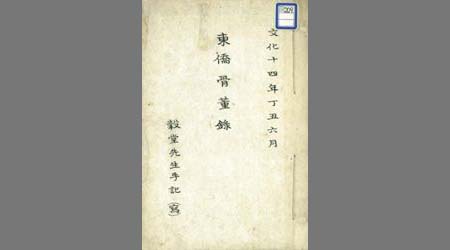 文化十四年丁丑六月
東僑骨董錄
穀堂先生手記(寫)